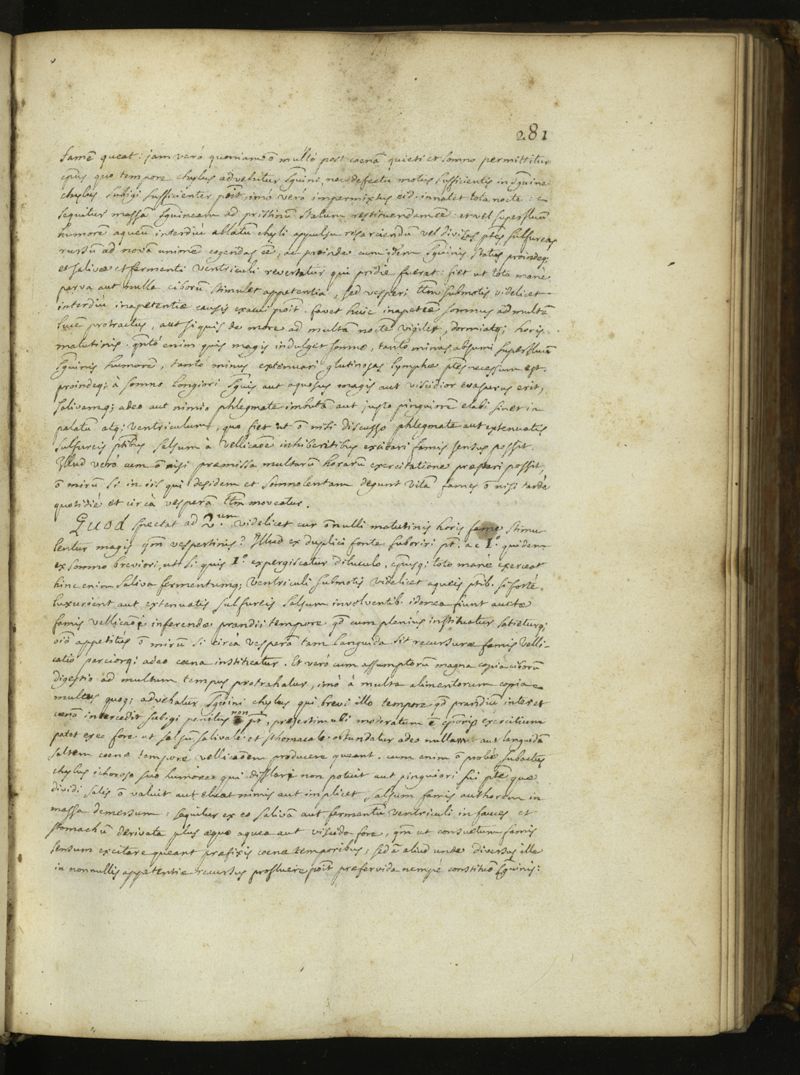 281
famē queat: jam verò quoniam ō multò post coenā quieti et somno permittitur
quo tempore chylus advehitur sguini, nec defectu motus sufficientis in sguine
chylus subigi sufficienter poīt, imò verò impermixtus eid. innatet tota nocte:
sequitur massā sguineam ad pristinū statum restituendam ēē: et vel superfluū
humorē aqueū interdiu ablatum chyli appulsu resarciendū vel divisas ptes sulfureas
rursū ad novā unionē cogendas ēē, ac proinde cum idem sguinis status proindeq;
et salivae et fermenti ventriculi revertatur qui pridie fuerat: fiet ut tota mane
parva aut nulla ciborum stimulet appetentia, sed vesperi tm̄ submotis videlicet
interdiu inapetentiae causis exacui poīt. favet huic somnus ad multā
lucē protractus, aut si quis de more ad multā noctē vigilet, dormiatq; horis
matutinis. qntò enim quis magis indulget somno, tantò minùs absumi superfluū
sguinis humorē, tanto minus extenuari glutinosas lymphae ptes necessum est.
proindeq; à somno longiori sguis aut aquosus magis aut viscidior evasurus erit,
salivamq; adeo aut nimio phlegmate imbutā aut justo pinguiorē elabi sinet in
palatū atq; ventriculum, quo fiet ut ō nisi discusso phlegmate aut extenuatis
sulfureis ptibus salsum à vellicaōe inhibentibus excitari famis sensus possit.
Illud verò cum ō nisi praemissa multarū horarū exercitatione praestari possit,
ō mirū si in iis qui desidem et somnolentam degunt vitā fames ō nisi tardè
quotidiè et circà vesperā tm̄ moveatur.
Quod spectat ad 2.um videlicet cur ōnulli matutinis horis fame stimu
lentur magis qm̄ vespertinis? Illud ex duplici fonte suboriri pt. ac 1.o quidem
ex somno breviori, ut si quis 1.o expergiscatur diluculo, toto mane exerceat
hinc enim saliva fermentumq; ventriculi submotis videlicet aqueis ptib. si fortè
luxurient aut extenuatis sulfureis salsum involventib. idonea fiunt
famis vellicaōi inferendae prandii tempore qd cum pleniùs instituatur
appetitus ō mirū si circà vesperā tam languida sit recursurae famis velli-
catio parciorq; adeo coena instituatur. Et verò cum assumptorū magna copia ciborū
digestio ad multum tempus protrahatur, imò à multa alimentorum copia
multus quoq; advehatur sguini chylus qui brevi illo tempore qd prandiū inter et
coenā intercedit subigi penitus non pt, praesertim ubi moderatum exercitium
patet ex eo fore ut salsū salivale et stomacale obtundatur adeo nullam aut languidā
saltem coenae tempore vellicaōem producere queant. cum enim ō probè subactus
chylus ichoroso suo humore qui difflari non potuit aut pinguiori sui pte quae
dividi satis ō valuit aut eluat nimis aut implicet salsum famis authorem in
massa demersum: sequitur ex eo salivā aut fermentū ventriculi in fauces et
stomachū derivata plus aequo aquea aut viscida fore, qm̄ ut consuetum famis
sensum excitare queant praefixis coenae temporibus; sed aliud unde diversus ille
in nonnullis appetentiae recursus profluere poīt praefervida nempe constituō sguinis: